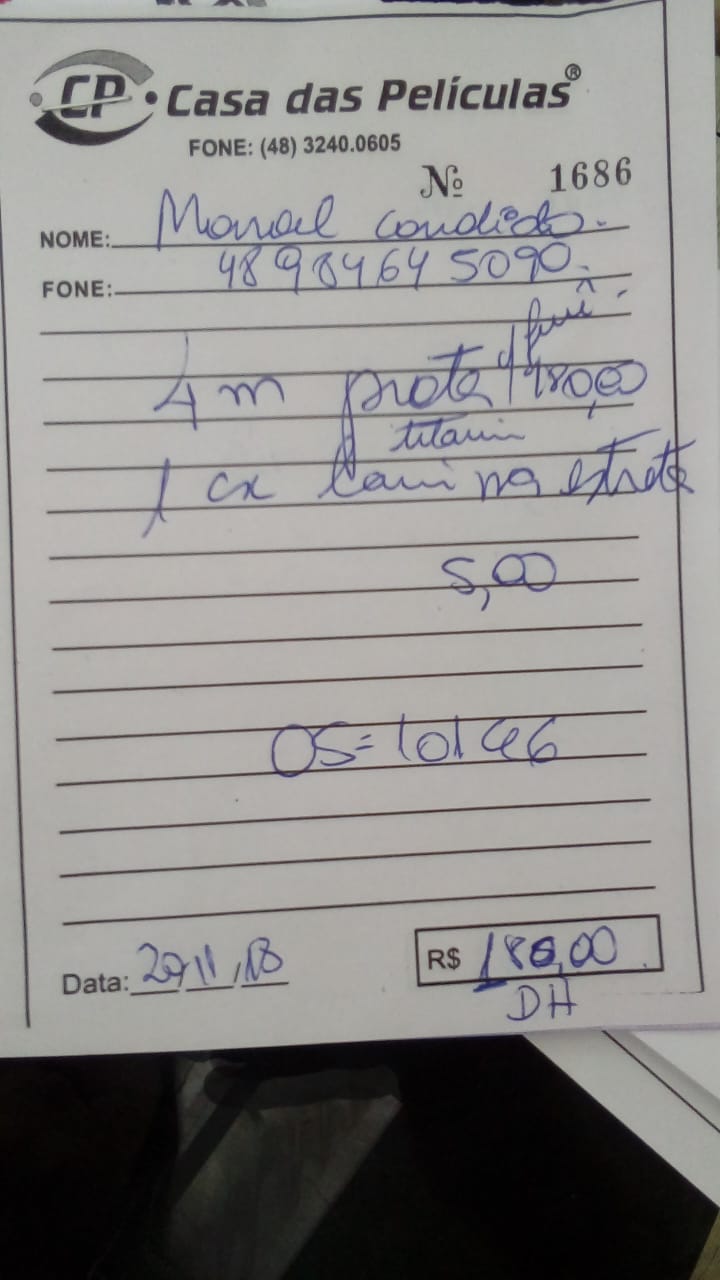 CP Casa das Películas®
FONE: (48) 3240.0605
Nº 1686
NOME: Manoel
FONE: 48 984645090
4 m prata
titanin
1 cx lamina estreita
5,00
OS= 10146
Data: 29/11/18
R$ 186,00
DH